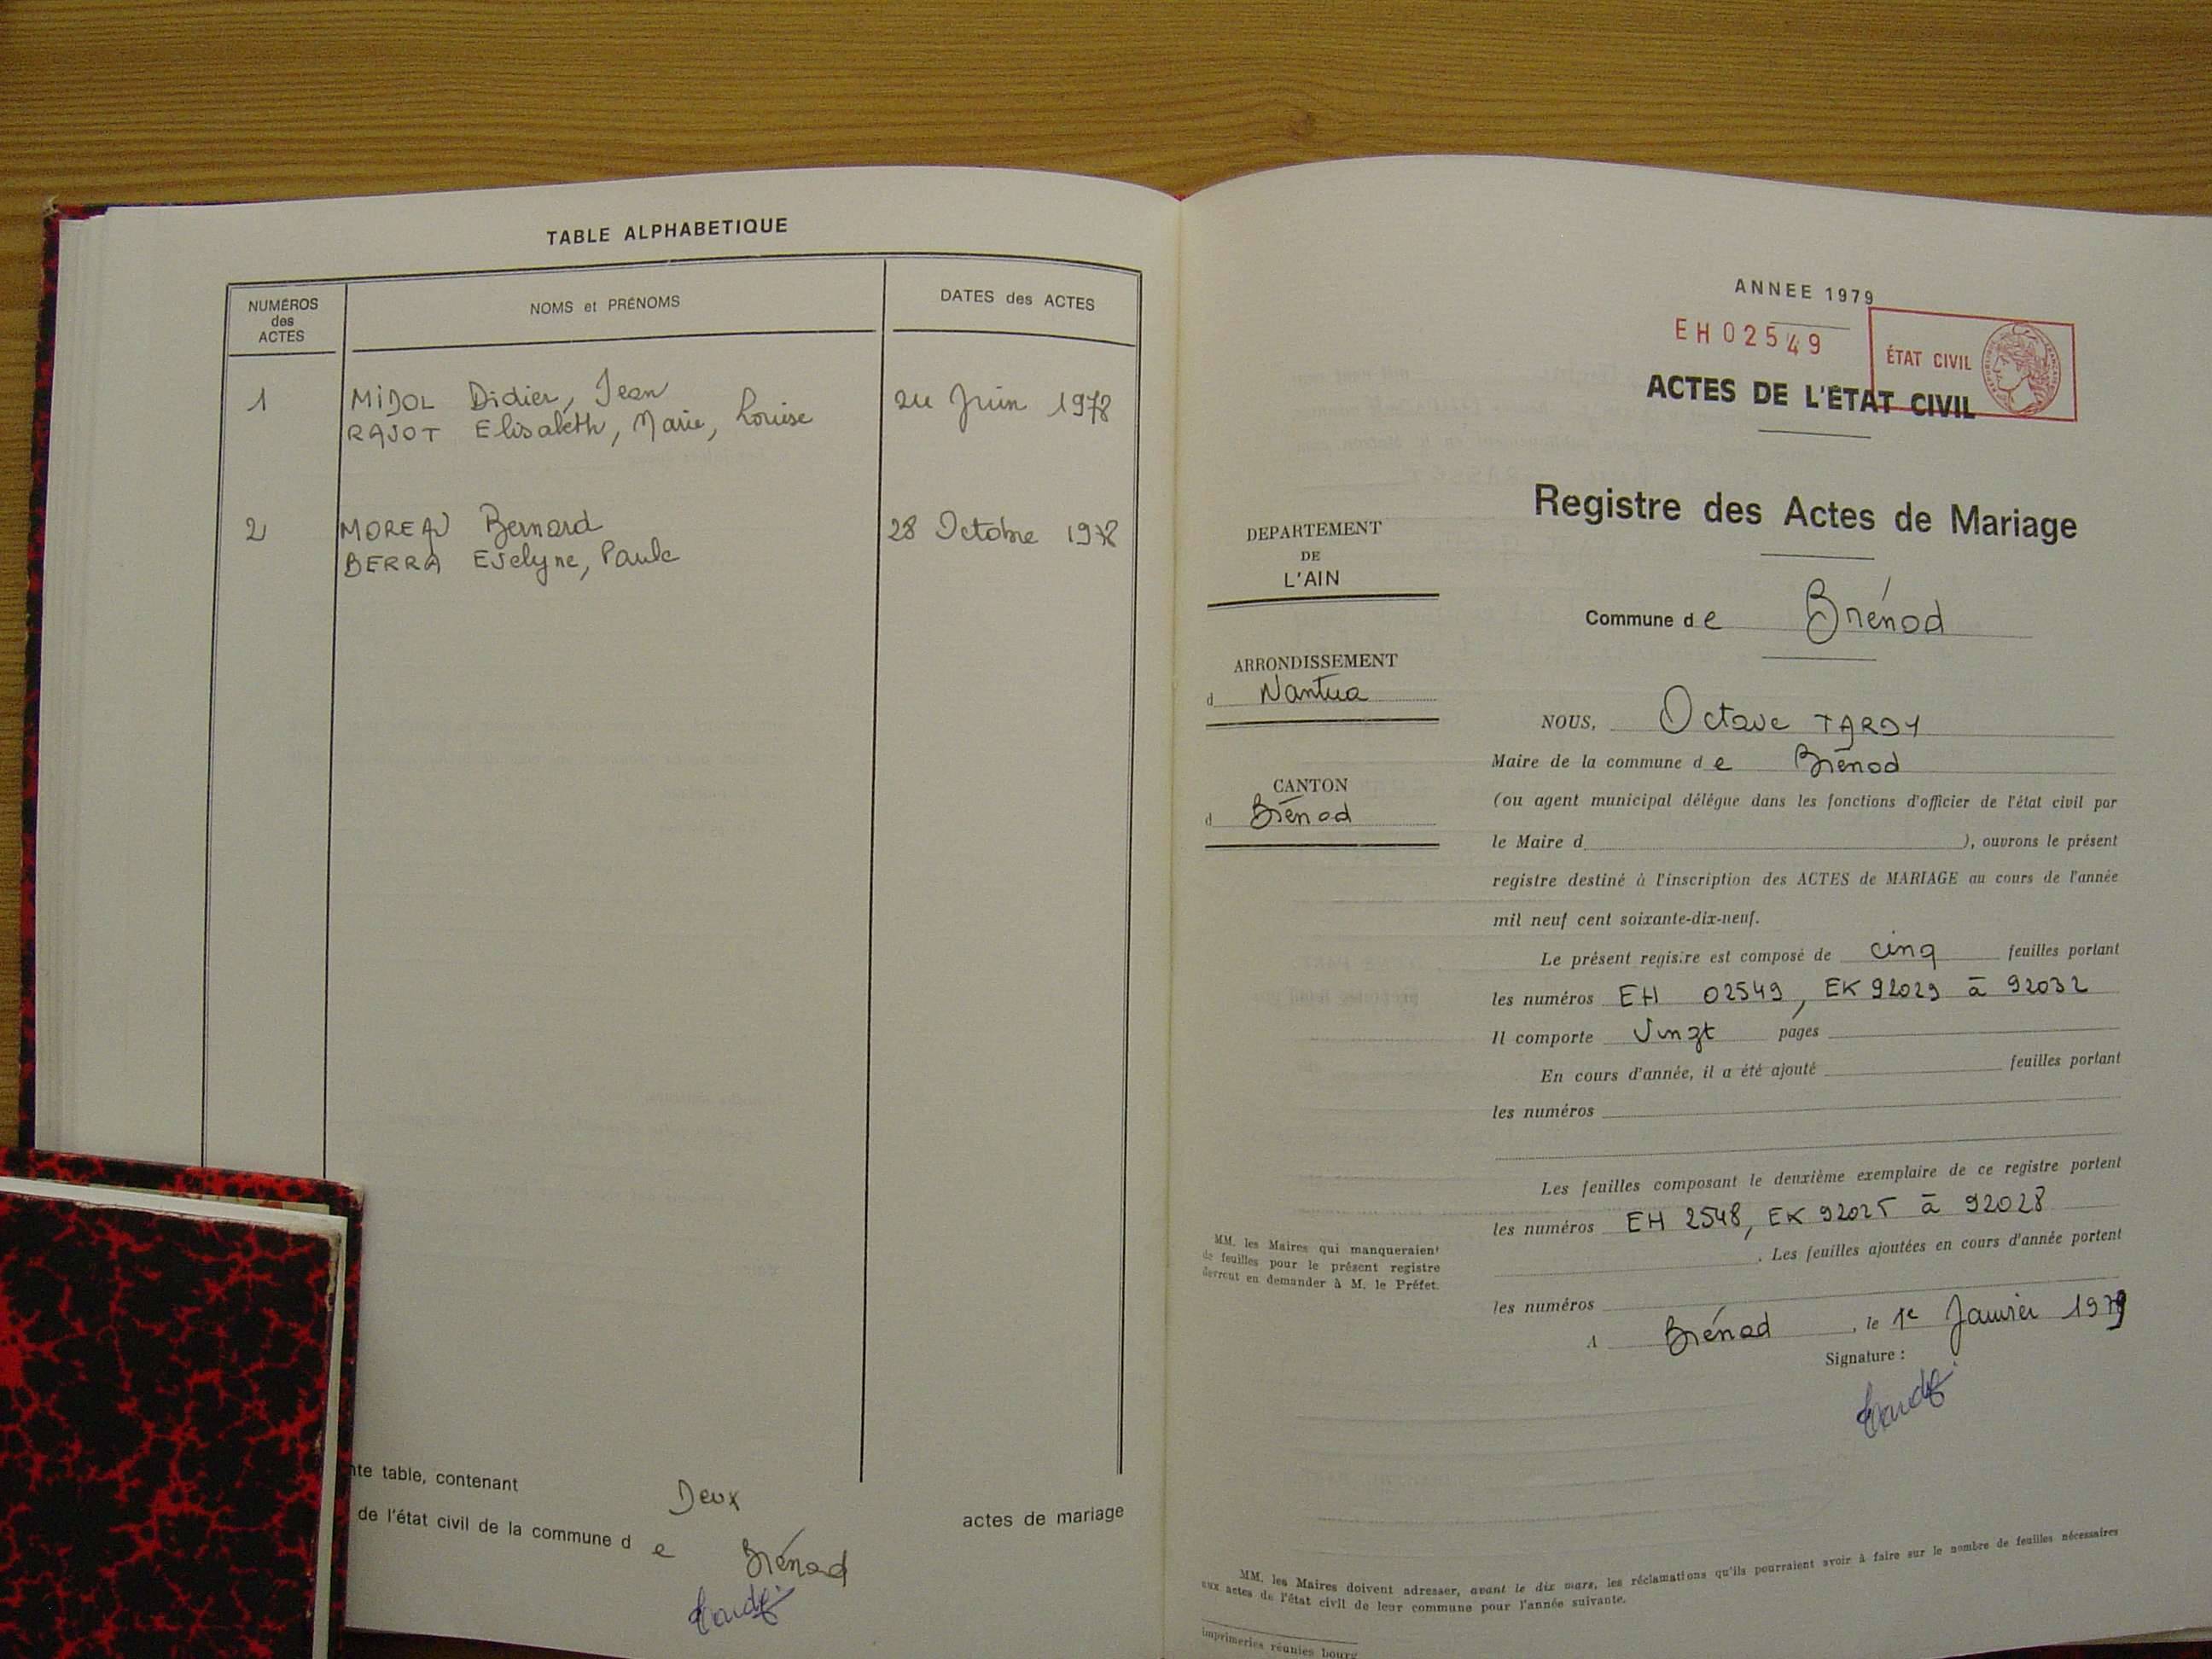 TABLE ALPHABETIQUE
NUMÉROS
des
ACTES
NOMS et PRÉNOMS
DATES des ACTES
1
MIDOL Didier, Jean
24 Juin 1978
RAJOT Elisabeth, Marie, Louise
2
MOREAU Bernard
28 Octobre 1978
BERRA Evelyne, Paule
nte table, contenant
Deux
actes de mariage
de l'état civil de la commune d e Brénod
ANNEE 1979
EH02549
ÉTAT CIVIL
ACTES DE L'ÉTAT CIVIL
Registre des Actes de Mariage
DEPARTEMENT
DE
L'AIN
Commune de Brénod
ARRONDISSEMENT
d Nantua
CANTON
d Brénod
NOUS, Octave TARDY
Maire de la commune de Brénod
(ou agent municipal délégue dans les fonctions d'officier de l'état civil par
le Maire d ), ouvrons le présent
registre destiné à l'inscription des ACTES de MARIAGE au cours de l'année
mil neuf cent soixante-dix-neuf.
Le présent regis.re est composé de cinq feuilles portant
les numéros EH 02549, EK 92029 à 92032
Il comporte Vingt pages
En cours d'année, il a été ajouté feuilles portant
les numéros
Les feuilles composant le deuxième exemplaire de ce registre portent
les numéros EH 2548, EK 92025 à 92028
. Les feuilles ajoutées en cours d'année portent
les numéros
A Brénod, le 1e Janvier 1979
Signature :
MM. les Maires qui manqueraient
de feuilles pour le présent registre
devront en demander à M. le Préfet.
MM. les Maires doivent adresser, avant le dix mars, les réclamations qu'ils pourraient avoir à faire sur le nombre de feuilles nécessaires
aux actes de l'état civil de leur commune pour l'année suivante.
imprimeries réunies bourg